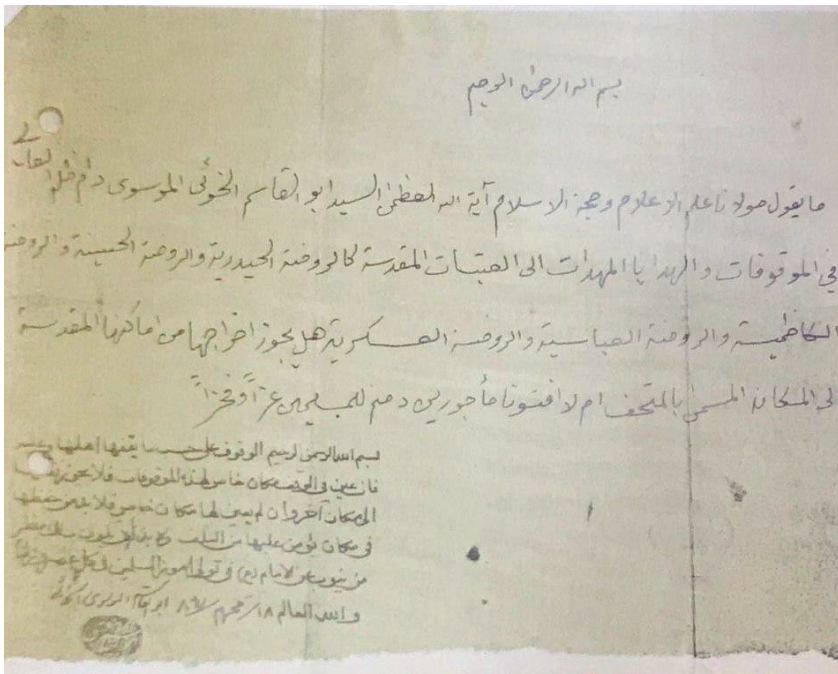 بسم الله الرحمن الرحيم
ما يقول مولانا علم الاعلام وحجة الاسلام آية الله العظمى السيد ابو القاسم الخوئي الموسوي دام ظله العالي
في الموقوفات والهدايا المهدات الى العتبات المقدسة كالروضة الحيدرية والروضة الحسينية والروضة
الكاظمية والروضة العباسية والروضة العسكرية هل يجوز اخراجها من اماكنها المقدسة
الى المكان المسمى بالمتحف ام لا افتونا مأجورين دمتم للمسلمين عزاً وفخراً
بسم الله الرحمن الرحيم الوقوف على حسب ما يقفها اهلها وعليه
فان عين في الوقف مكان خاص لهذه الموقوفات فلا يجوز نقلها
الى مكان آخر وان لم يعين لها مكان خاص فلا بد من حفظها
في مكان يؤمن عليها من التلف ولا بد أن يكون بنظر
من ينوب عن الامام (ع) في تولي امور المسلمين في كل عصر
والله العالم ١٨ محرم ابو القاسم الموسوي الخوئي